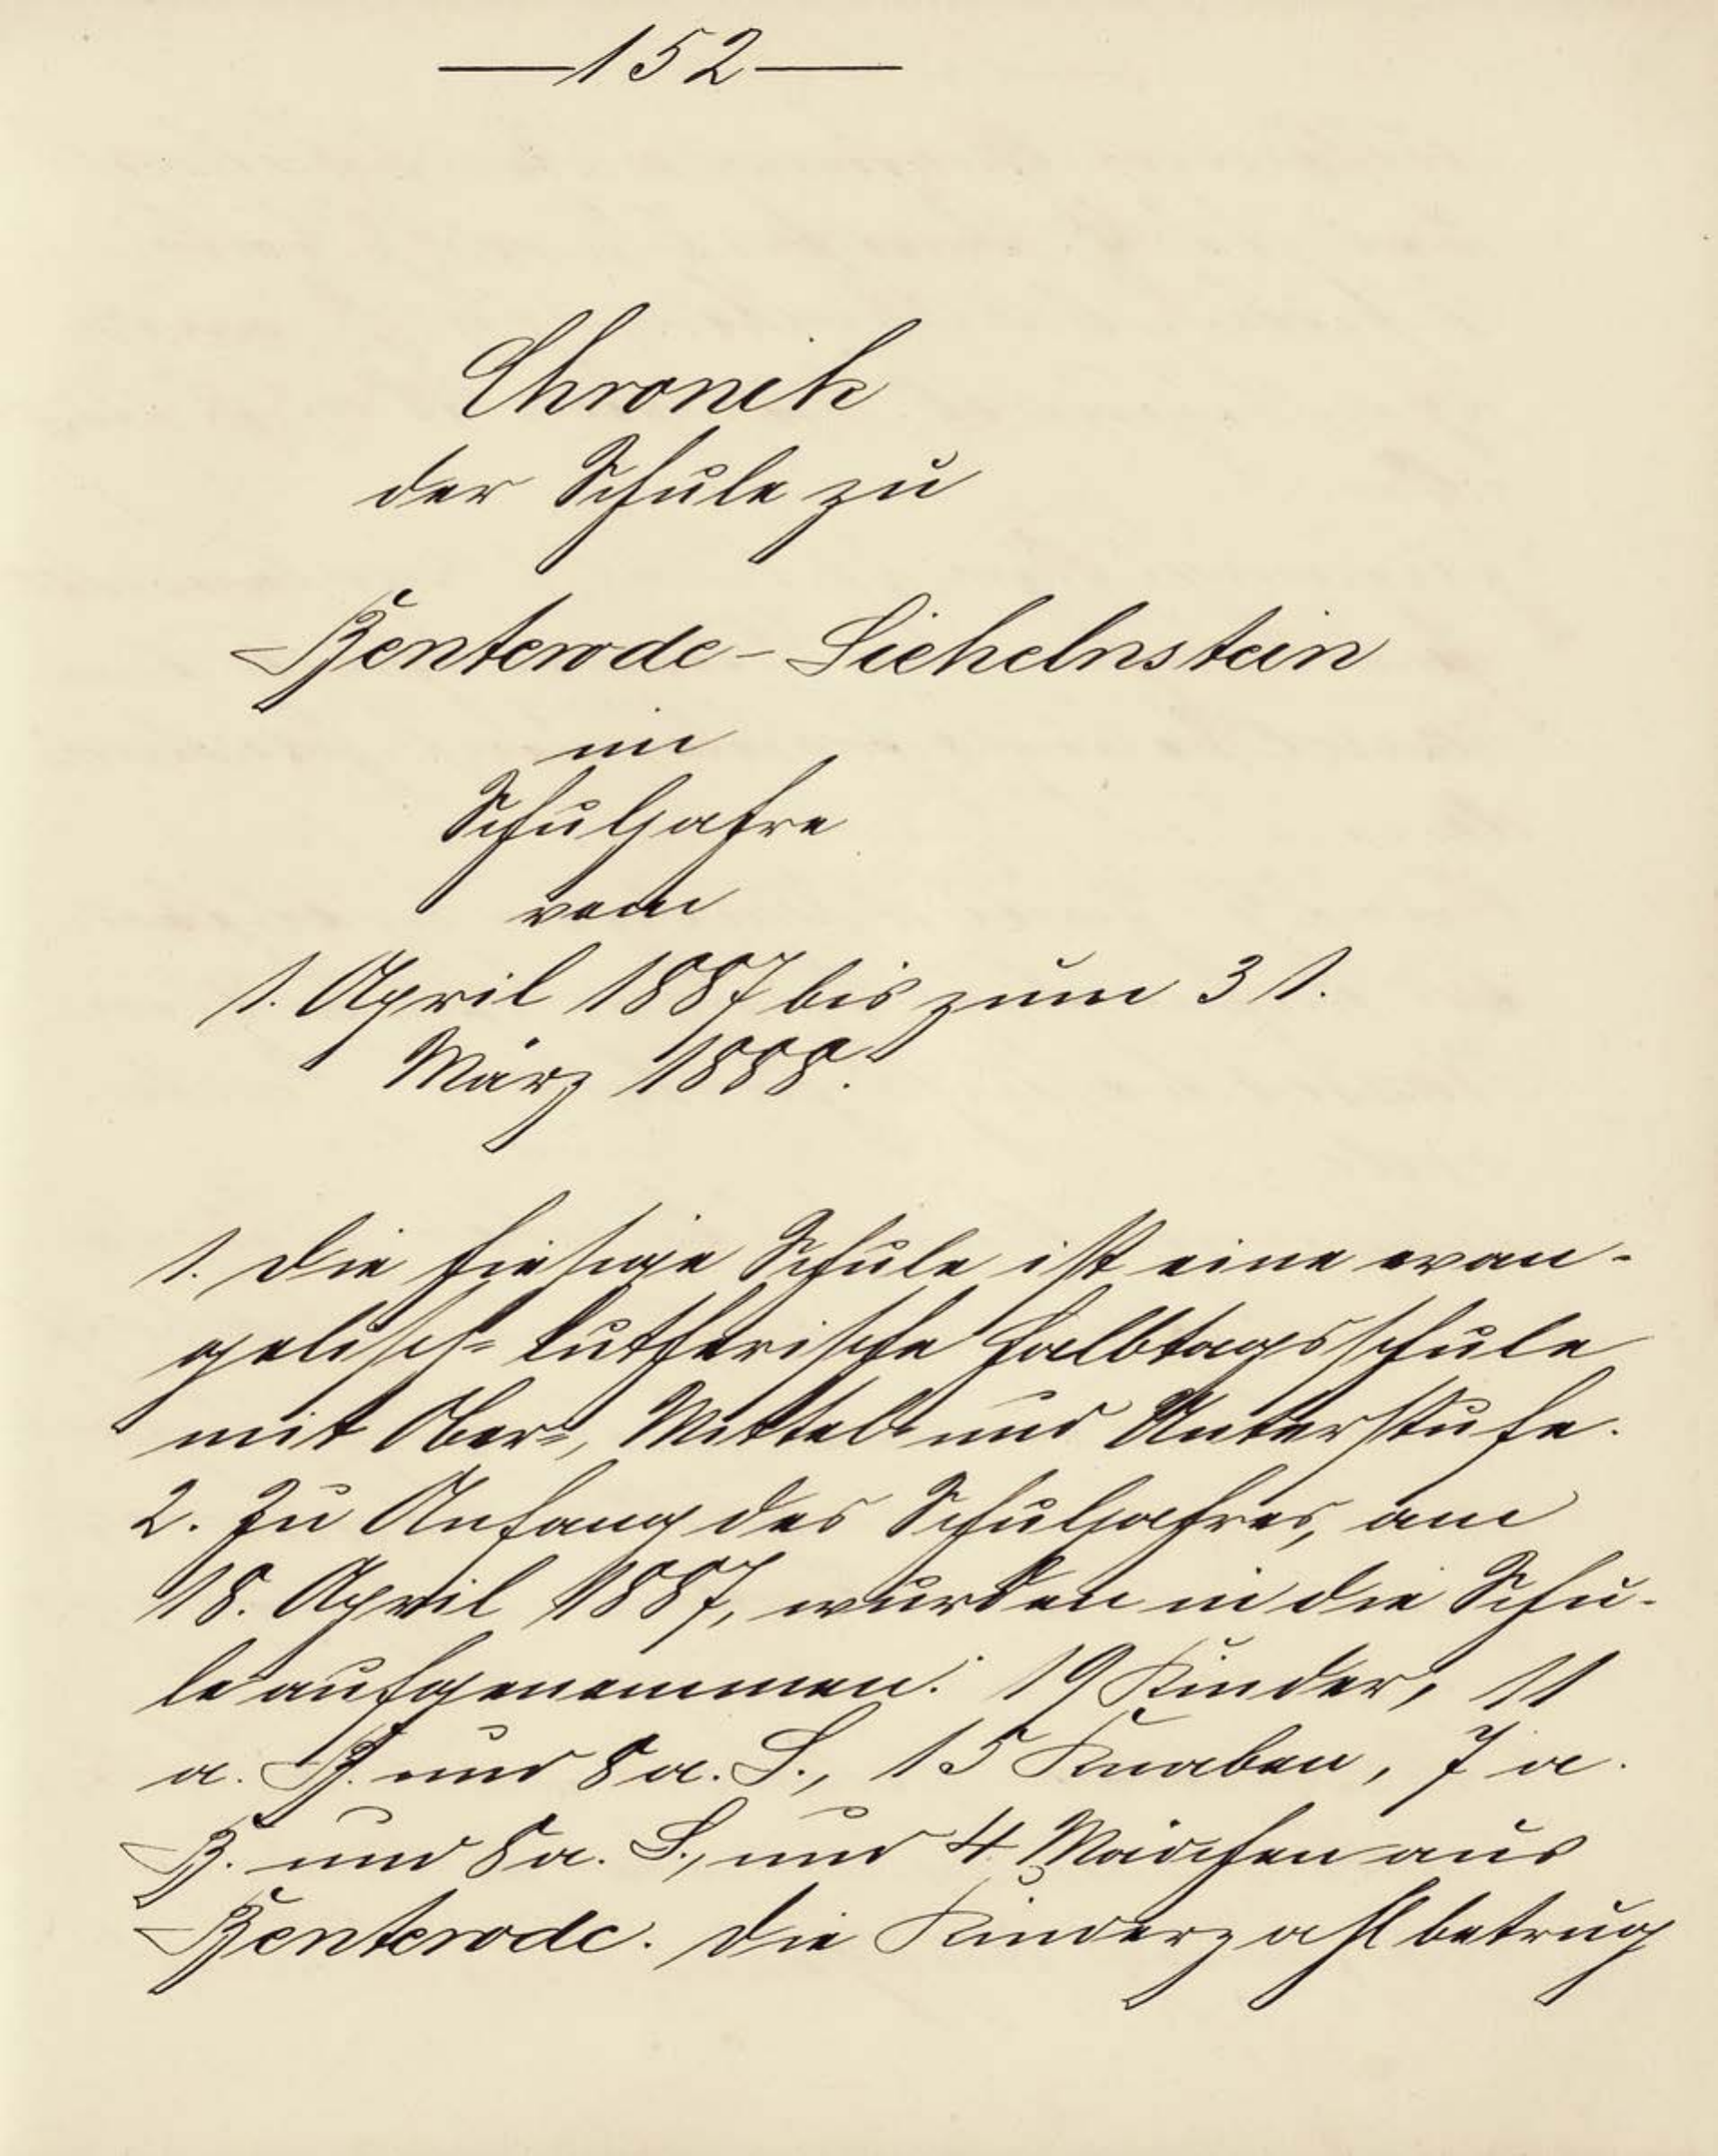 —152—
Chronik
der Schule zu
Benterode-Sichelnstein
im
Schuljahre
vom
1. April 1887 bis zum 31.
März 1888.
1. Die hiesige Schule ist eine evan-
gelisch-lutherische Halbtagsschule
mit Ober-, Mittel- und Unterstufe.
2. Zu Anfang des Schuljahres, am
18. April 1887, wurden in die Schu-
le aufgenommen: 19 Kinder, 11
a. B. und 8 a. S., 15 Knaben, 7 a.
B. und 8 a. S., und 4 Mädchen aus
Benterode. Die Kinderzahl betrug